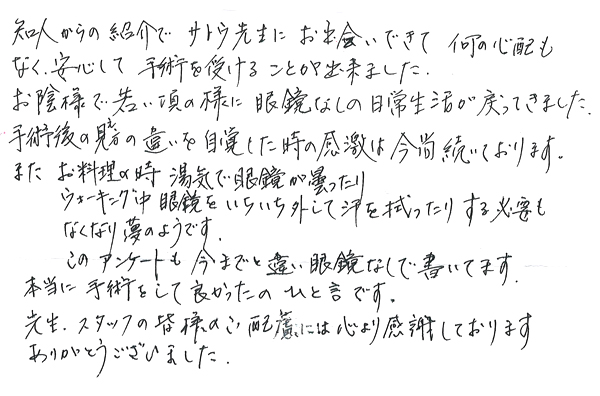 知人からの紹介で サトウ先生に お出会いできて 何の心配も
なく、安心して 手術を受けることが出来ました。
お陰様で若い頃の様に 眼鏡なしの日常生活が戻ってきました。
手術後の見え方の違いを自覚した時の感激は今尚続いております。
また お料理の時 湯気で眼鏡が曇ったり
ウォーキング中 眼鏡をいちいち外して汗を拭ったりする必要も
なくなり夢のようです。
このアンケートも 今までと違い眼鏡なしで書いてます。
本当に 手術をして良かったの ひと言です。
先生、スタッフの皆様のご配慮には心より感謝しております
ありがとうございました。